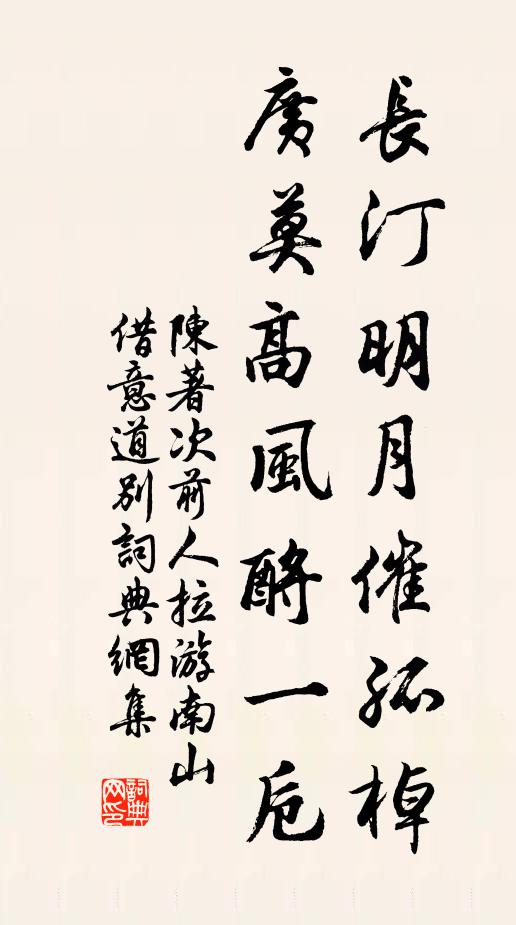 長汀明月催孤棹
廣莫高風酹一卮
陳著次前人拉游南山
借意道別詞典網集
詞典网印